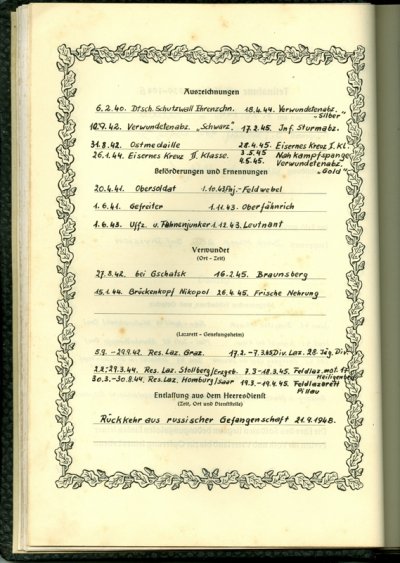 Auszeichnungen
6.2.40. Dtsch. Schutzwall Ehrenzchn. 18.4.44. Verwundetenabz. "Silber"
10.9.42. Verwundetenabz. "Schwarz". 17.2.45. Inf. Sturmabz.
31.8.42. Ostmedaille 28.4.45. Eisernes Kreuz I. Kl.
26.1.44. Eisernes Kreuz II. Klasse. 3.5.45 Nahkampfspange
4.5.45. Verwundetenabz. "Gold"
Beförderungen und Ernennungen
20.4.41. Obersoldat 1.10.43 Fhj.-Feldwebel
1.6.41. Gefreiter 1.11.43. Oberfähnrich
1.6.43. Uffz. u. Fahnenjunker 1.12.43. Leutnant
Verwundet
(Ort - Zeit)
27.8.42. bei Gschatsk 16.2.45. Braunsberg
15.1.44. Brückenkopf Nikopol 26.4.45. Frische Nehrung
(Lazarett - Genesungsheim)
5.9. - 29.9.42. Res. Laz. Graz. 17.2. - 7.3.45 Div. Laz. 28. Jäg. Div.
2.2.-29.3.44. Res. Laz. Stollberg/Erzgeb. 7.3.-18.3.45. Feldlaz. mot.
30.3.-30.8.44. Res. Laz. Homburg/Saar 19.3.-19.4.45. Feldlazarett Pillau
Entlassung aus dem Heeresdienst
(Zeit, Ort und Dienststelle)
Rückkehr aus russischer Gefangenschaft 21.9.1948.